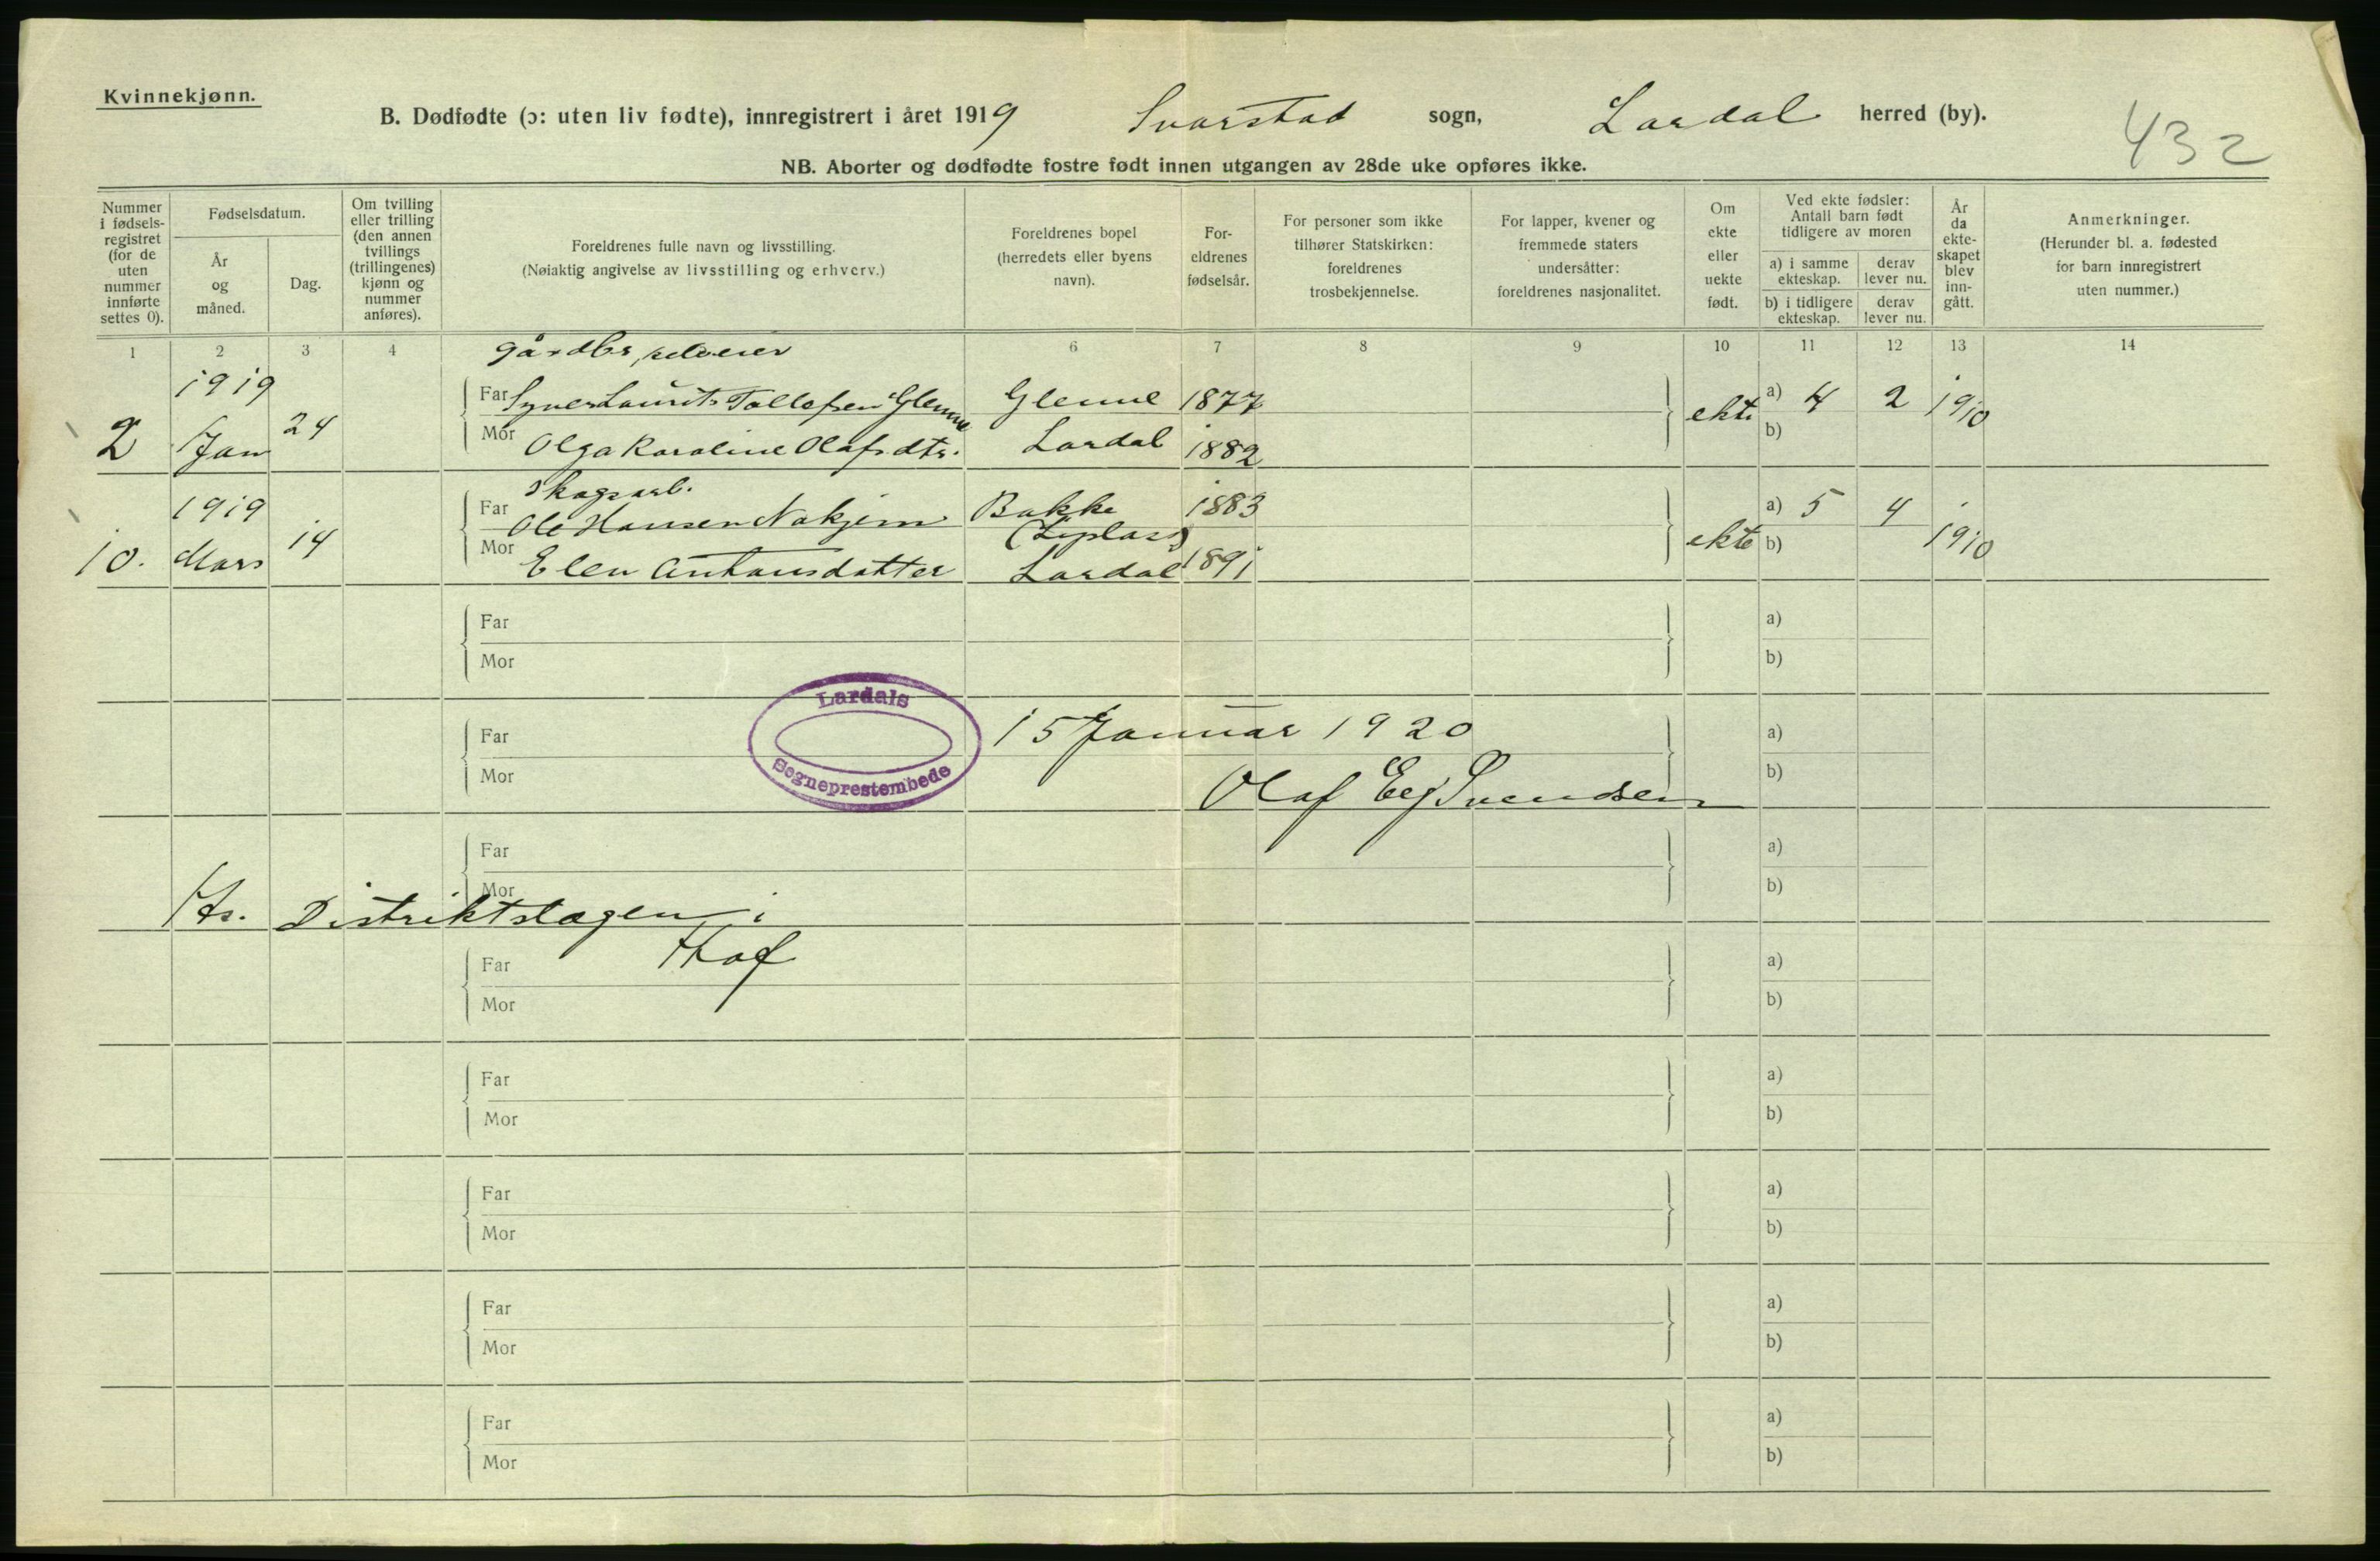 Kvinnekjønn.
B. Dødfødte (ɔ: uten liv fødte), innregistrert i året 1919 Svarstad sogn, Lardal herred (by).
432
NB. Aborter og dødfødte fostre født innen utgangen av 28de uke opføres ikke.
Nummer i fødsels-registret (for de uten nummer innførte settes 0).
Fødselsdatum.
År og måned.
Dag.
Om tvilling eller trilling (den annen tvillings (trillingenes) kjønn og nummer anføres).
Foreldrenes fulle navn og livsstilling.
(Nøiaktig angivelse av livsstilling og erhverv.)
Foreldrenes bopel (herredets eller byens navn).
For-eldrenes fødselsår.
For personer som ikke tilhører Statskirken: foreldrenes trosbekjennelse.
For lapper, kvener og fremmede staters undersåtter: foreldrenes nasjonalitet.
Om ekte eller uekte født.
Ved ekte fødsler: Antall barn født tidligere av moren
a) i samme ekteskap.
derav lever nu.
b) i tidligere ekteskap.
derav lever nu.
År da ekte-skapet blev inn-gått.
Anmerkninger.
(Herunder bl. a. fødested for barn innregistrert uten nummer.)
1 2 3 4 6 7 8 9 10 11 12 13 14
gårdbr, selveier
1919
Far Syver Laurits Tollefsen Glenne Glenne 1877 a) 4 2 1910
2 Jan 24 ekte
Mor Olga Karoline Olafsdtr. Lardal 1882 b)
Skogsarb.
1919 Far Ole Hansen Nakjem Bakke 1883 a) 5 4
10. Mars 14 ekte b) 1910
Mor Elen Antonsdatter Lardal 1891
Far a)
Mor b)
Lardals
Sogneprestembede
Far 15 Januar 1920 a)
Mor b)
Olaf Eeg Svendsen
Far a)
Mor b)
Hr. Distriktslægen i
Hof
Far a)
Mor b)
Far a)
Mor b)
Far a)
Mor b)
Far a)
Mor b)
Far a)
Mor b)